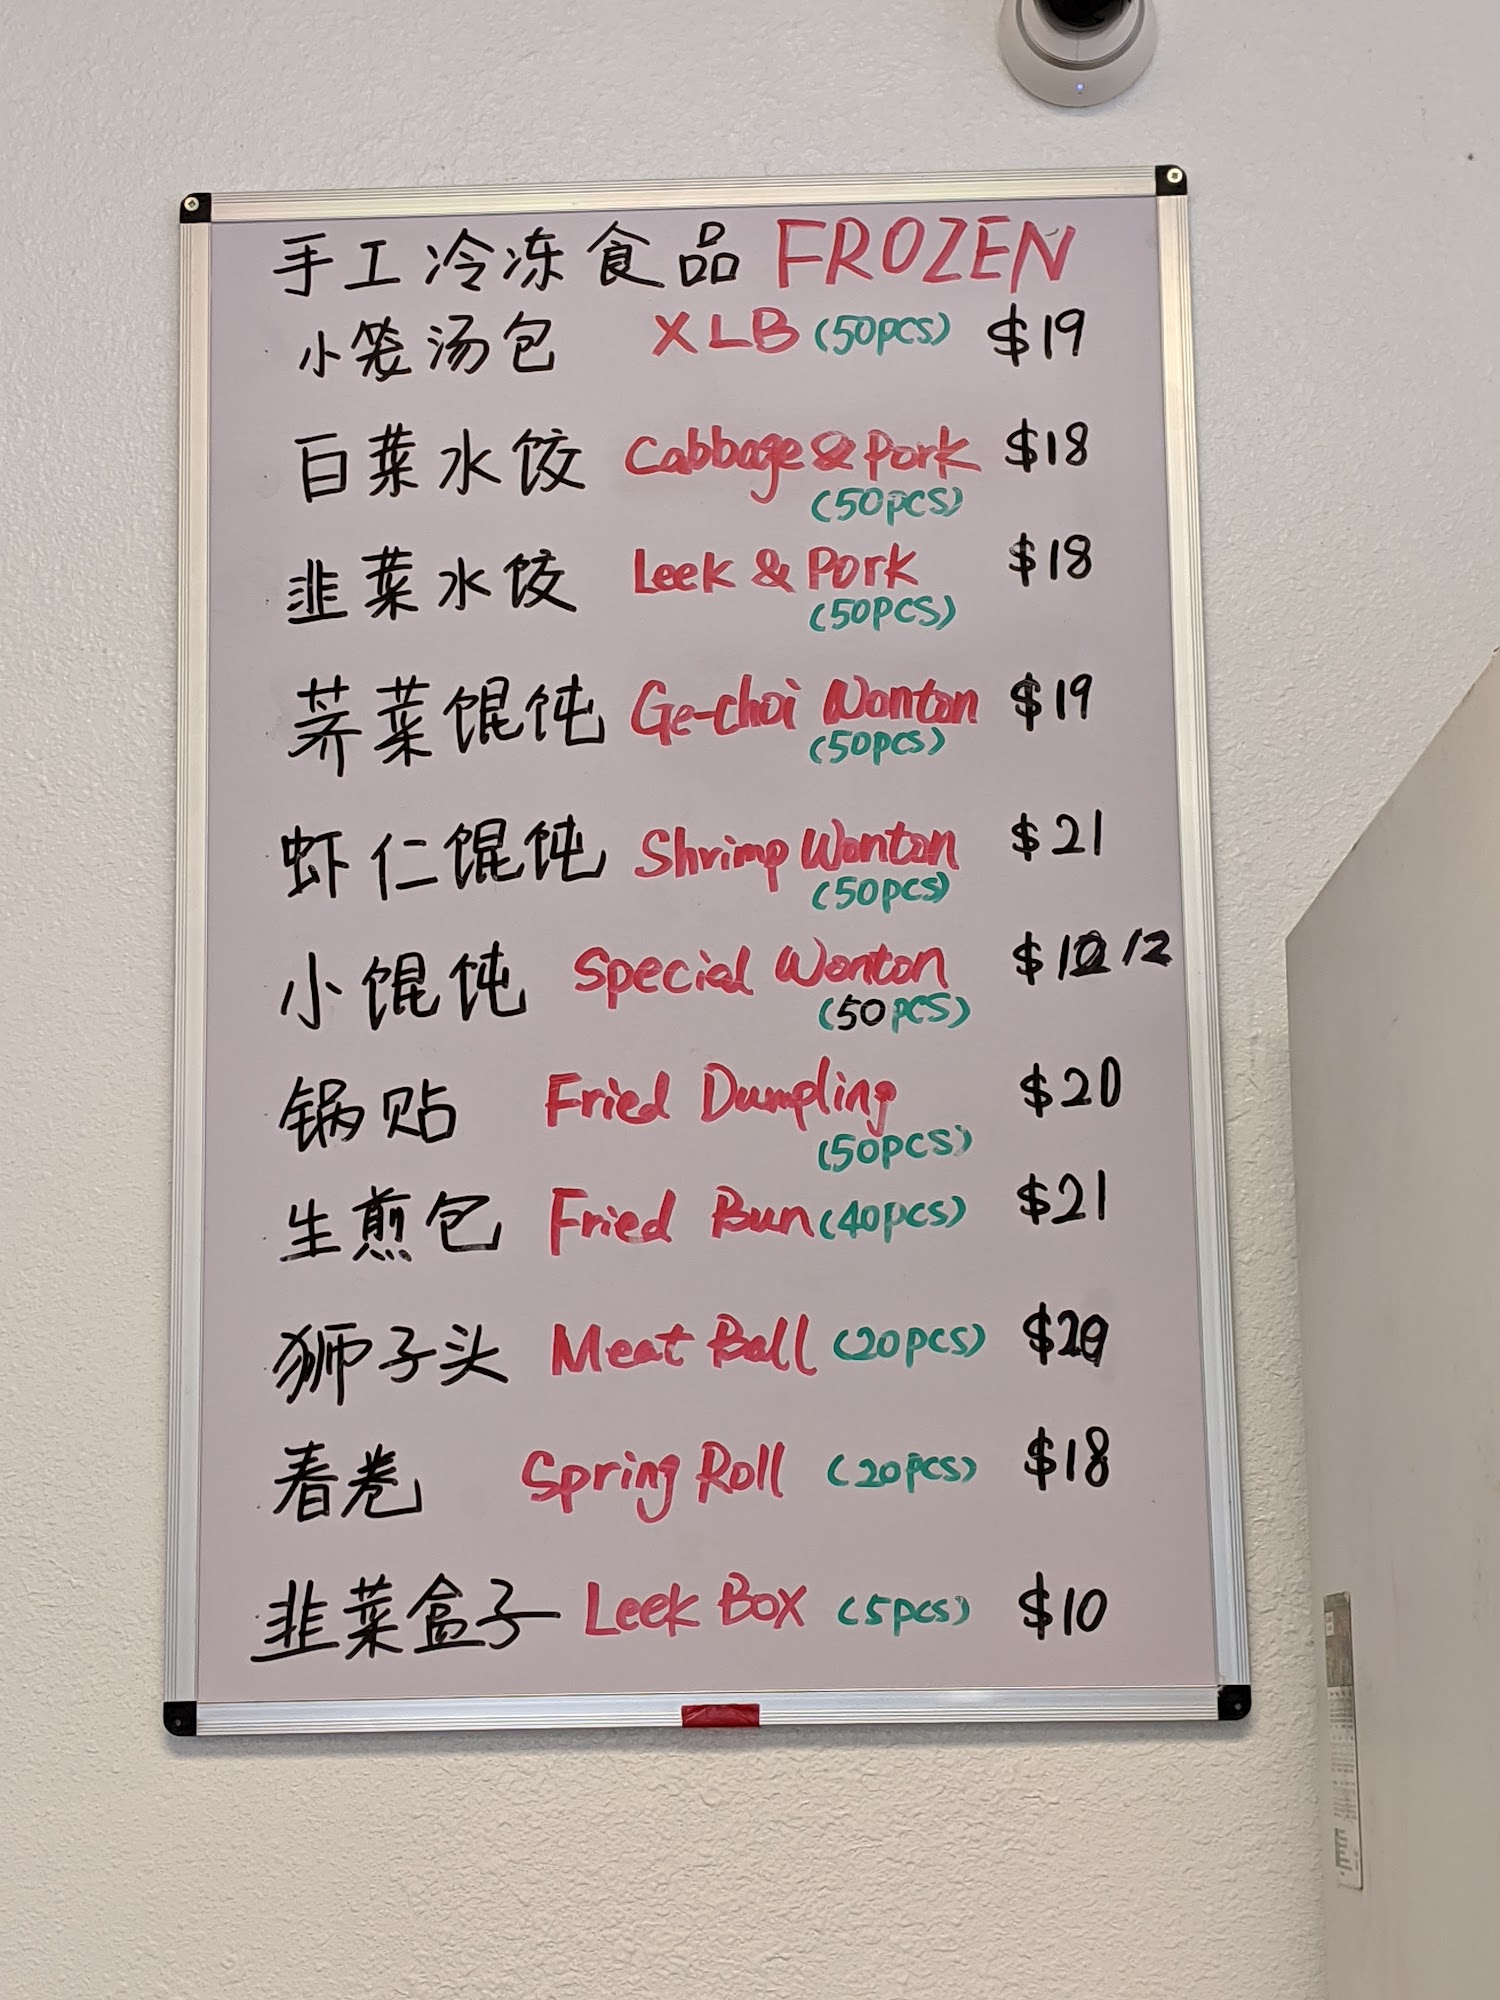 手工冷冻食品 FROZEN
小笼汤包 XLB (50pcs) $19
白菜水饺 Cabbage & Pork $18
(50pcs)
韭菜水饺 Leek & Pork $18
(50pcs)
荠菜馄饨 Ge-choi Wonton $19
(50pcs)
虾仁馄饨 Shrimp Wonton $21
(50pcs)
小馄饨 Special Wonton $12 12
(50pcs)
锅贴 Fried Dumpling $20
(50pcs)
生煎包 Fried Bun (40pcs) $21
狮子头 Meat Ball (20pcs) $20
春卷 Spring Roll (20pcs) $18
韭菜盒子 Leek Box (5pcs) $10